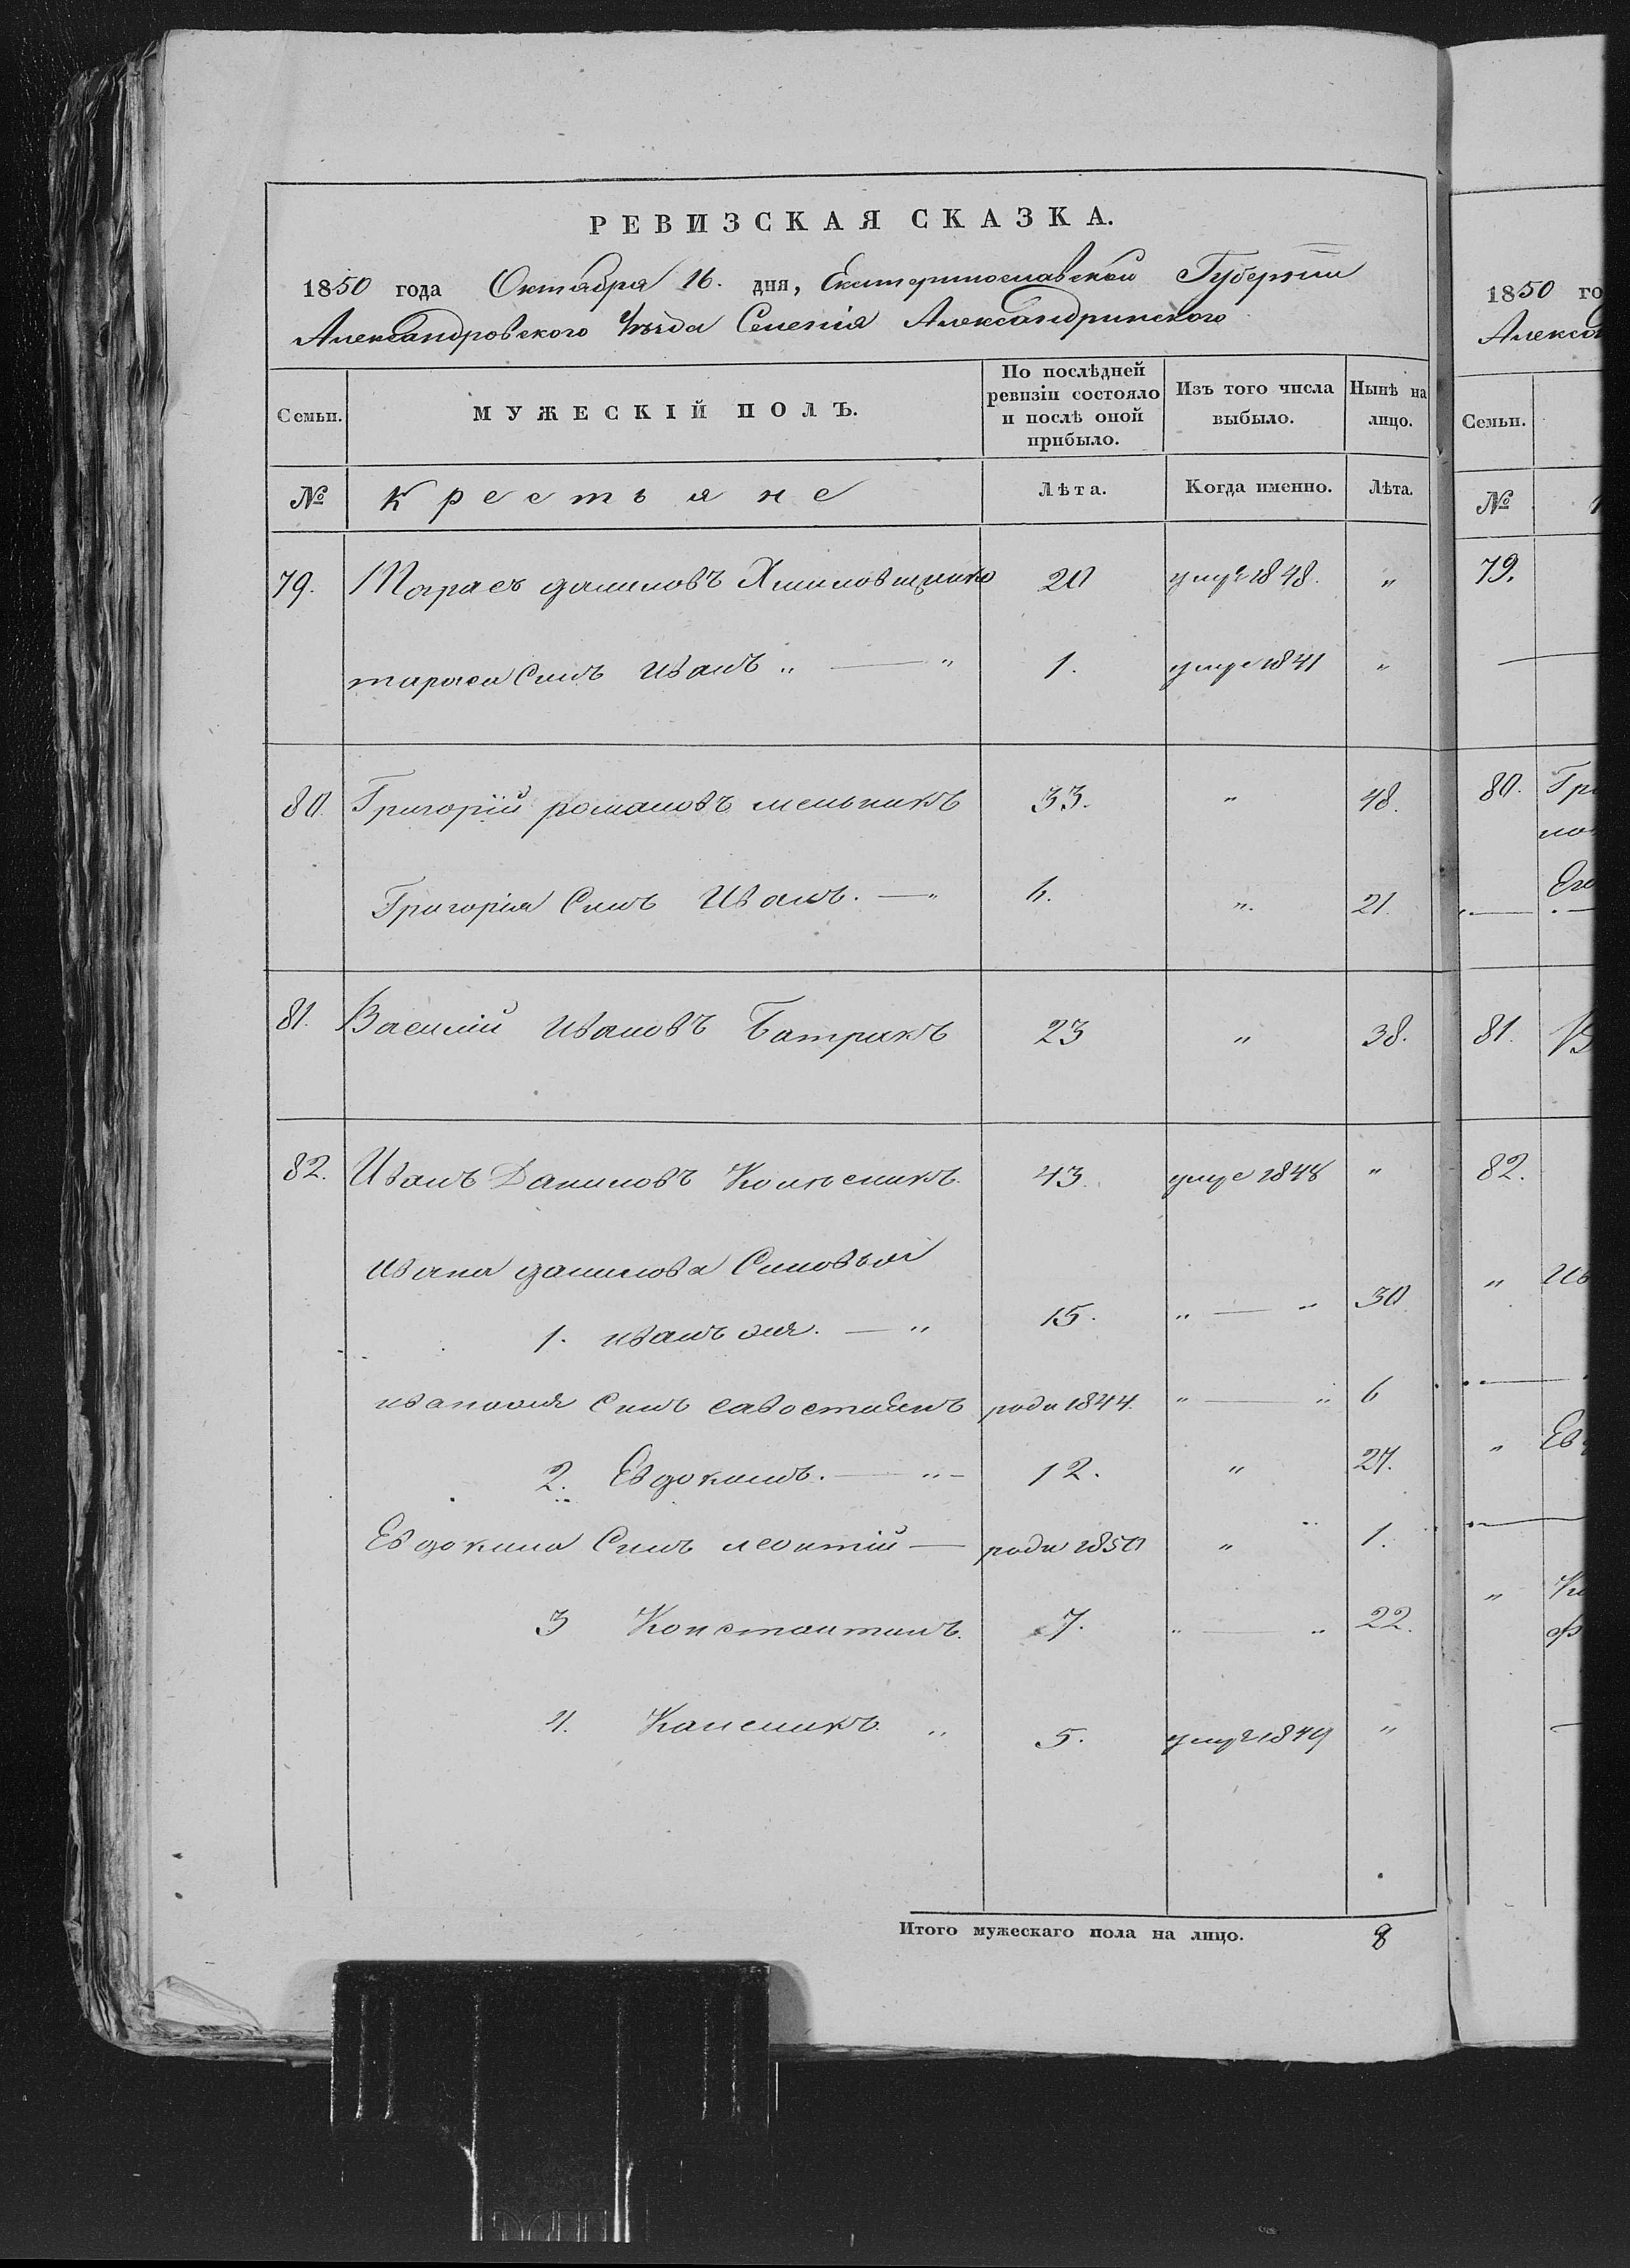 РЕВИЗСКАЯ СКАЗКА.
1850 года Октября 16. дня, Екатеринославской Губерніи
Александровского Уѣзда Селенія Александринского
Семьи. МУЖЕСКІЙ ПОЛЪ. По послѣдней ревизіи состояло и послѣ оной прибыло. Изъ того числа выбыло. Нынѣ на лицо.
№ Крестьяне Лѣта. Когда именно. Лѣта.
79. Тарасъ даниловъ 20 1848. „
тараса Синъ Иванъ „ — „ 1. 1841 „
80. Григорій романовъ мельникъ 33. „ 48.
Григорія Синъ Иванъ. — „ 6. „ 21.
81. Василій Ивановъ Батракъ 23 „ 38.
82. Иванъ Даниловъ Колѣсникъ. 43. умре 1848 „
Ивана данилова Синовья
1. иванъ — „ 15. „ — „ 30.
Синъ савостиянъ роди 1844. „ — „ 6
2. Евдокимъ. — „ — 12. „ 27.
Евдокима Синъ леонтій — роди 1850 „ 1.
3 Константинъ. 7. „ — „ 22.
4. „ 5. 1849 „
Итого мужескаго пола на лицо. 8
1850 го
Алекса
Семьи.
№
79.
80. Гри
Его
81. В
82.
„ Ив
„ Ев
„ Ко